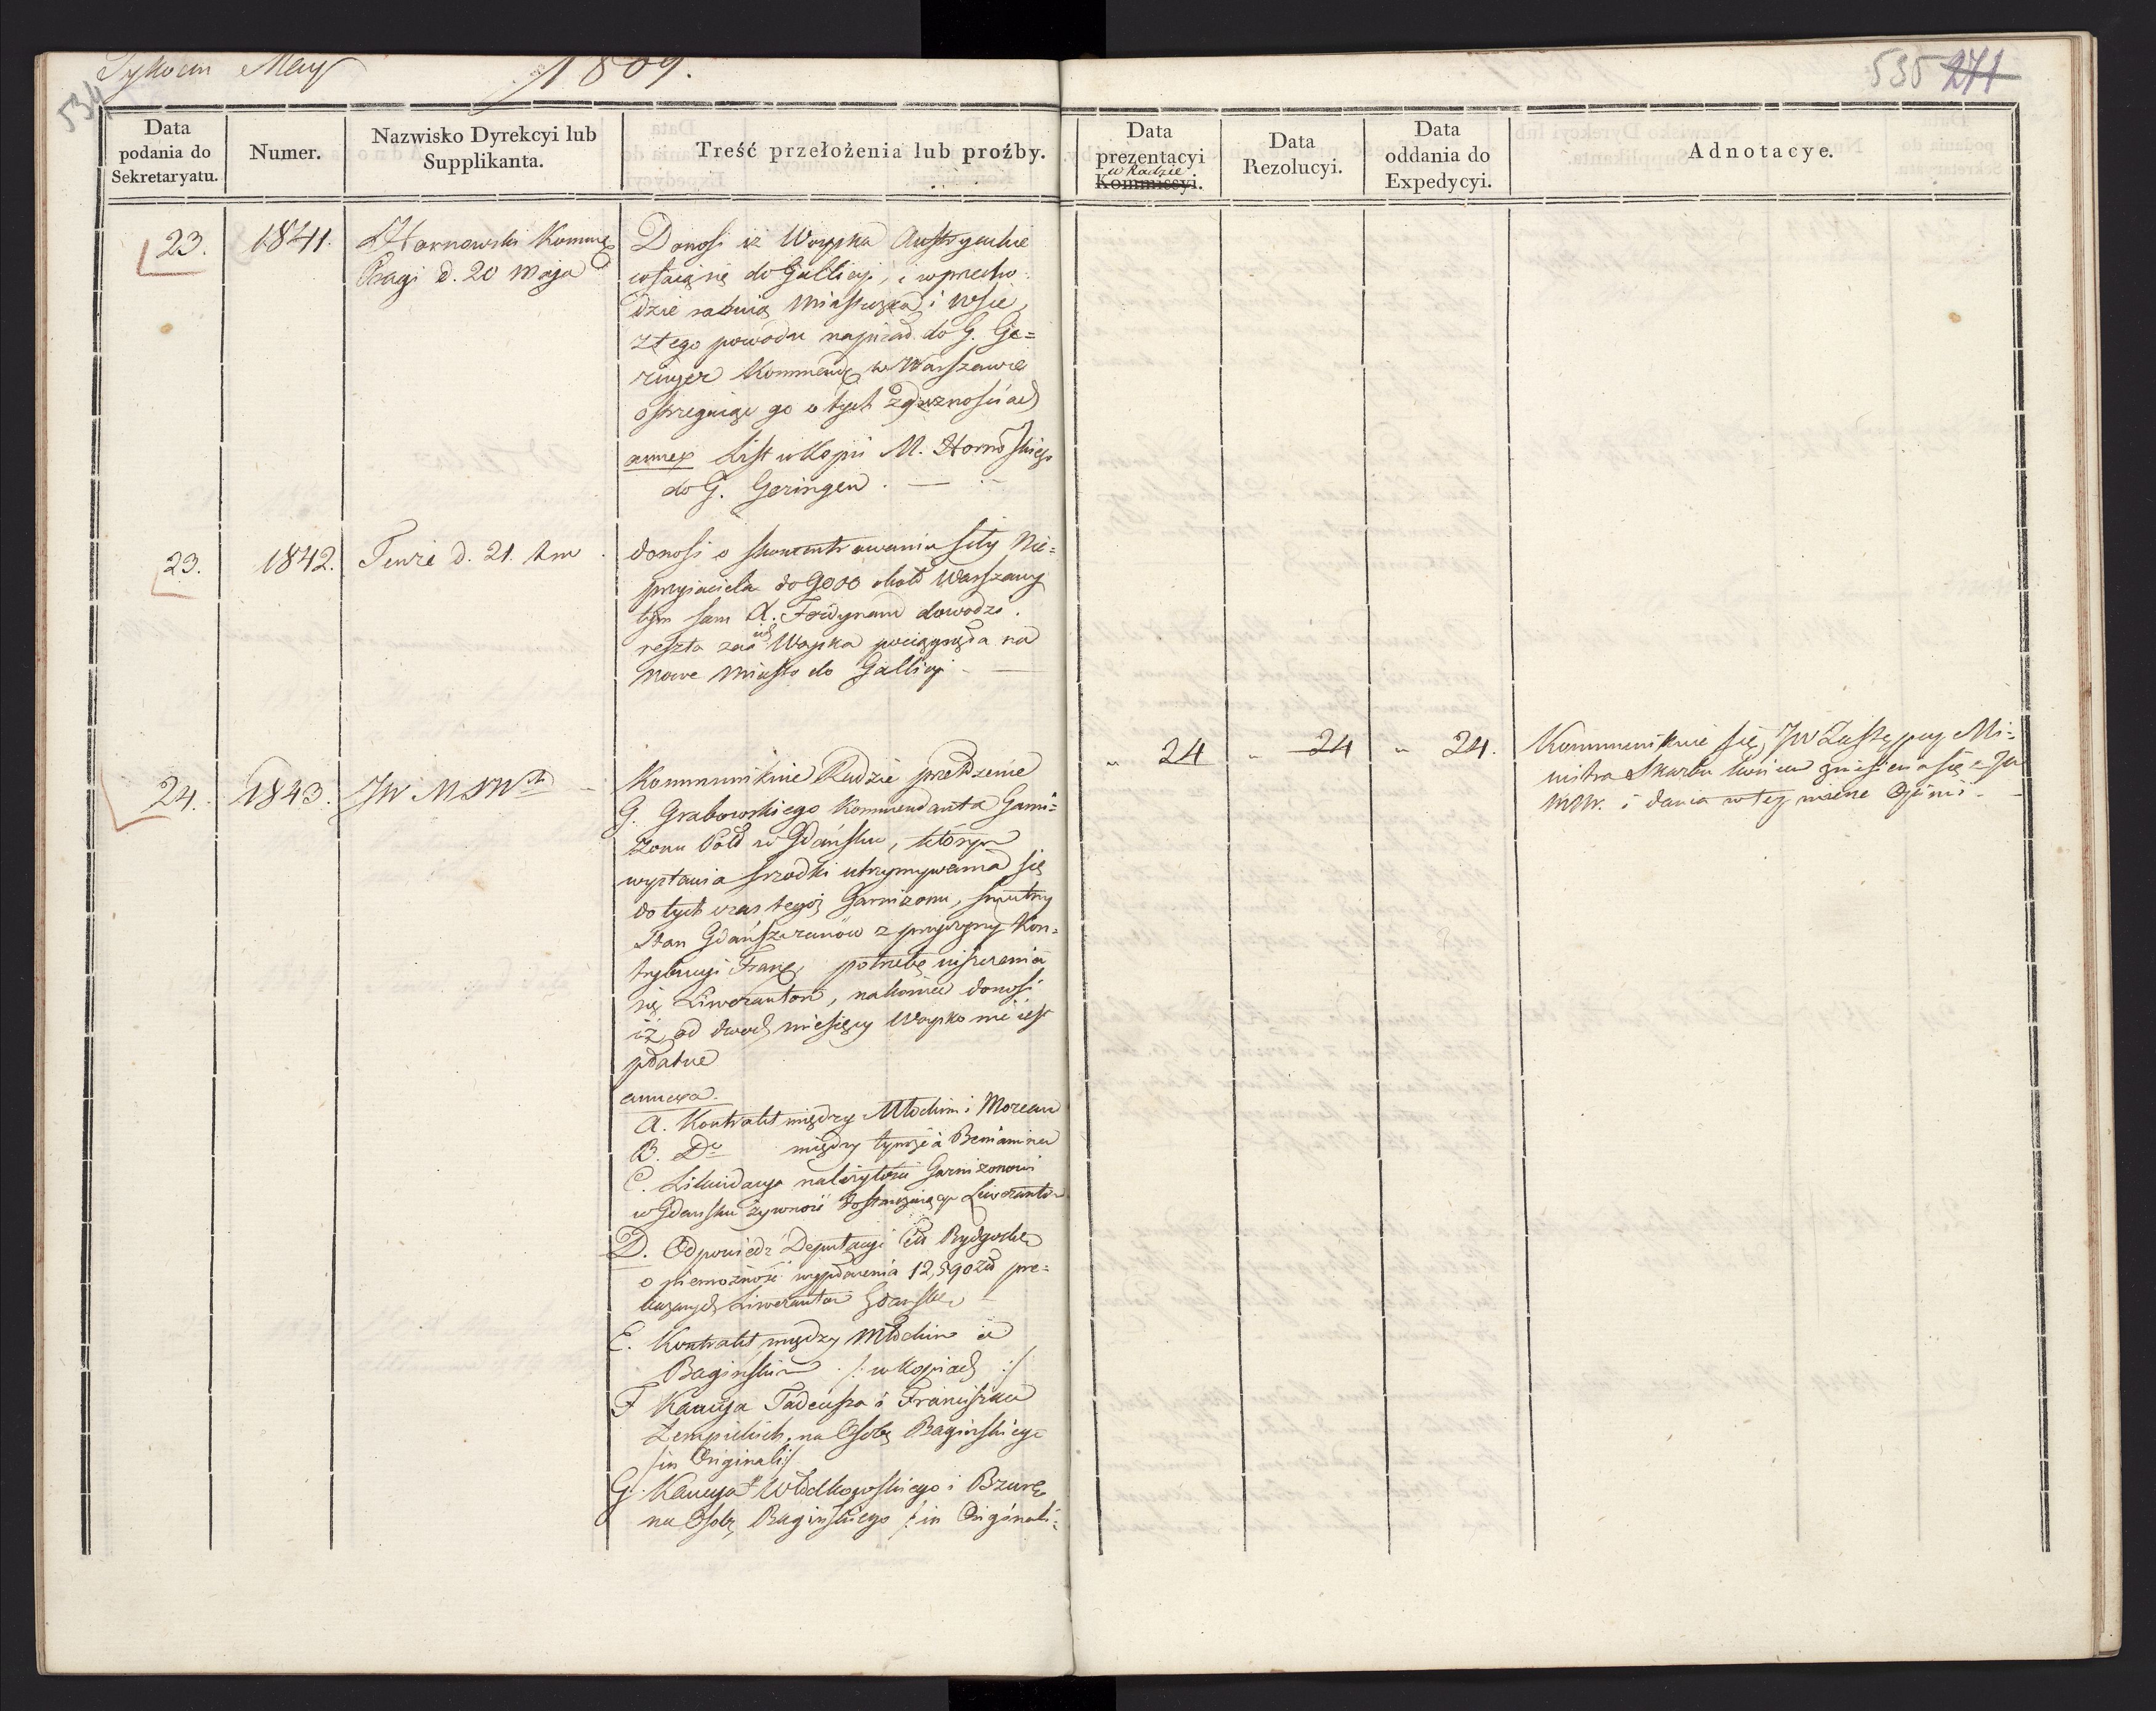 Tykocin May 1809.
534
535 271
Data podania do Sekretaryatu.
Numer.
Nazwisko Dyrekcyi lub Supplikanta.
Treść przełożenia lub proźby.
Data prezentacyi w Radzie Kommissyi.
Data Rezolucyi.
Data oddania do Expedycyi.
Adnotacye.
23. 1841. Hornowski Komm
Pragi d. 20 Maja
Donosi iż Woyska Austryackie
cofaią się do Gallicyi, i w przecho-
dzie rabuią Miasteczka i Wsie,
z tego powodu napisał do G. Ge=
ringer Kommend w Warszawie
ostrzegaiąc go o tych zdrożnościach
annex List w Kopii M. Hornoskiego
do G. Geringer. —
23. 1842. Tenże d. 21. t m
donosi o skoncentrowaniu siły Nie=
przyiaciela do 9000 około Warszawy
tym sam A. Ferdynand dowodzi.
reszta zaś ich Woyska pociągnęła na
nowe Miasto do Gallicyi —
24. 1843. JW MSW
Kommunikuie Radzie przełożenie
G. Grabowskiego Kommendanta Garni=
zonu Pold w Gdańsku, którym
wystawia srzodki utrzymywania się
dotychczas tegoż Garnizonu, smutny
Stan Gdańszczanów z przyczyny Kon=
trybucyi Franc, potrzebę uiszczenia
się Liwerantom, nakoniec donosi
iż od dwóch miesięcy Woysko nie iest
płatne
annexa.
A. Kontrakt między Młockim i Moreau
B. Do między tymże a Beniaminem
C. Likwidacya należytości Garnizonowi
w Gdansku żywność dostarczaiących Liwerantów
D. Odpowiedź Deputacyi Bydgosk
o niemożności wypłacenia 12,590 zł prze=
kazanych Liwerantowi Gdańsk
E. Kontrakt między Młockim a
Baginskim /: w kopiach :/
F Kaucya Tadeusza i Franciszka
Zempickich, na Osobę Baginskiego
/in Originali/
G. Kaucya Włodkowskiego i Bzure
na Osobę Baginskiego /: in Originali:
" 24 " 24 " 24.
Kommunikuie się JW Zastępcy Mi=
nistra Skarbu końcem zniesienia się z JW
MSW. i dania w tey mierze Opinii —